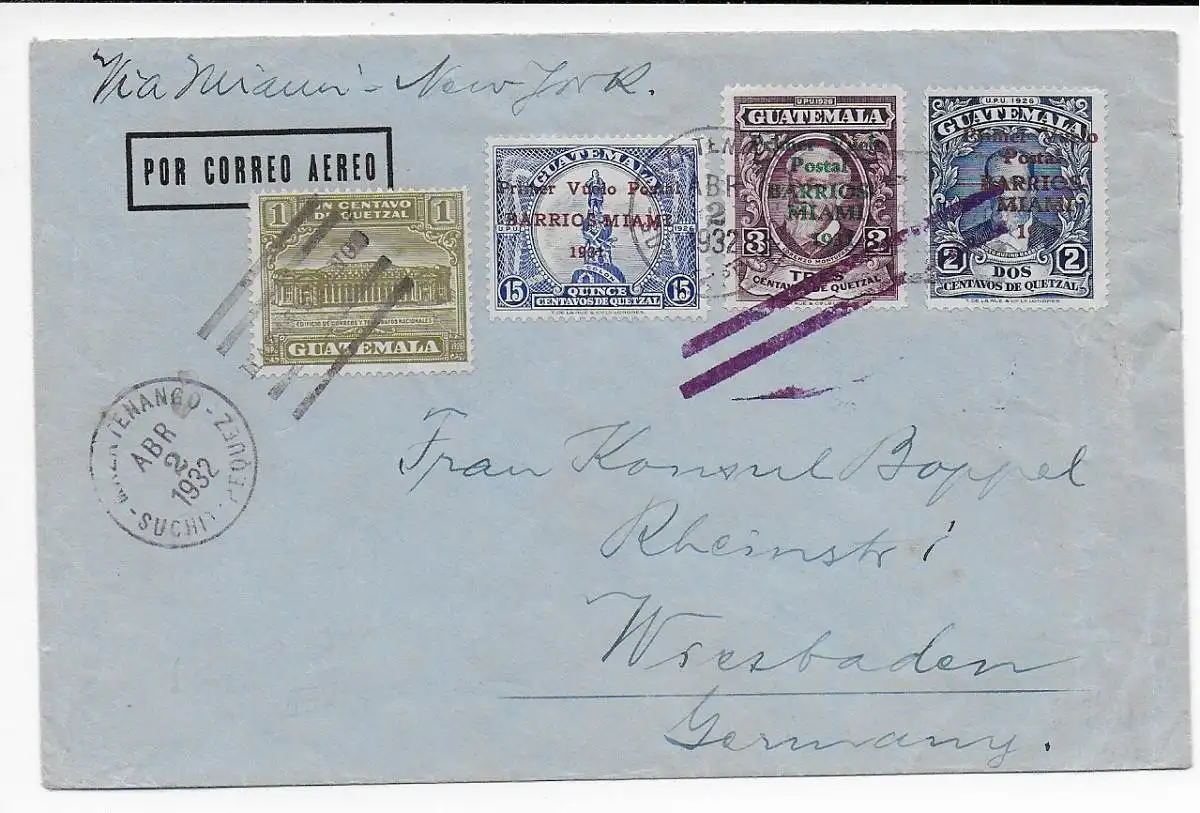 Via Miami - New York.
POR CORREO AEREO
1 UN CENTAVO DE QUETZAL 1
EDIFICIO DE CORREOS Y TELEGRAFOS NACIONALES
GUATEMALA
GUATEMALA
Primer Vuelo Postal
BARRIOS-MIAMI
1931
U.P.U. 1926
COLON
15 QUINCE 15
CENTAVOS DE QUETZAL
T. DE LA RUE & CO LD LONDRES.
U.P.U. 1926
GUATEMALA
Primer Vuelo
Postal
BARRIOS-
MIAMI
1931
LORENZO MONTUFAR
3 TRES 3
CENTAVOS DE QUETZAL
U.P.U. 1926
GUATEMALA
Primer Vuelo
Postal
BARRIOS-
MIAMI
2 DOS 2
CENTAVOS DE QUETZAL
T. DE LA RUE & CO LD LONDRES.
ABR
2
1932
MAZATENANGO - SUCHITEPEQUEZ
ABR
2
1932
Frau Konsul Boppel
Rheinstr 1
Wiesbaden
Germany.